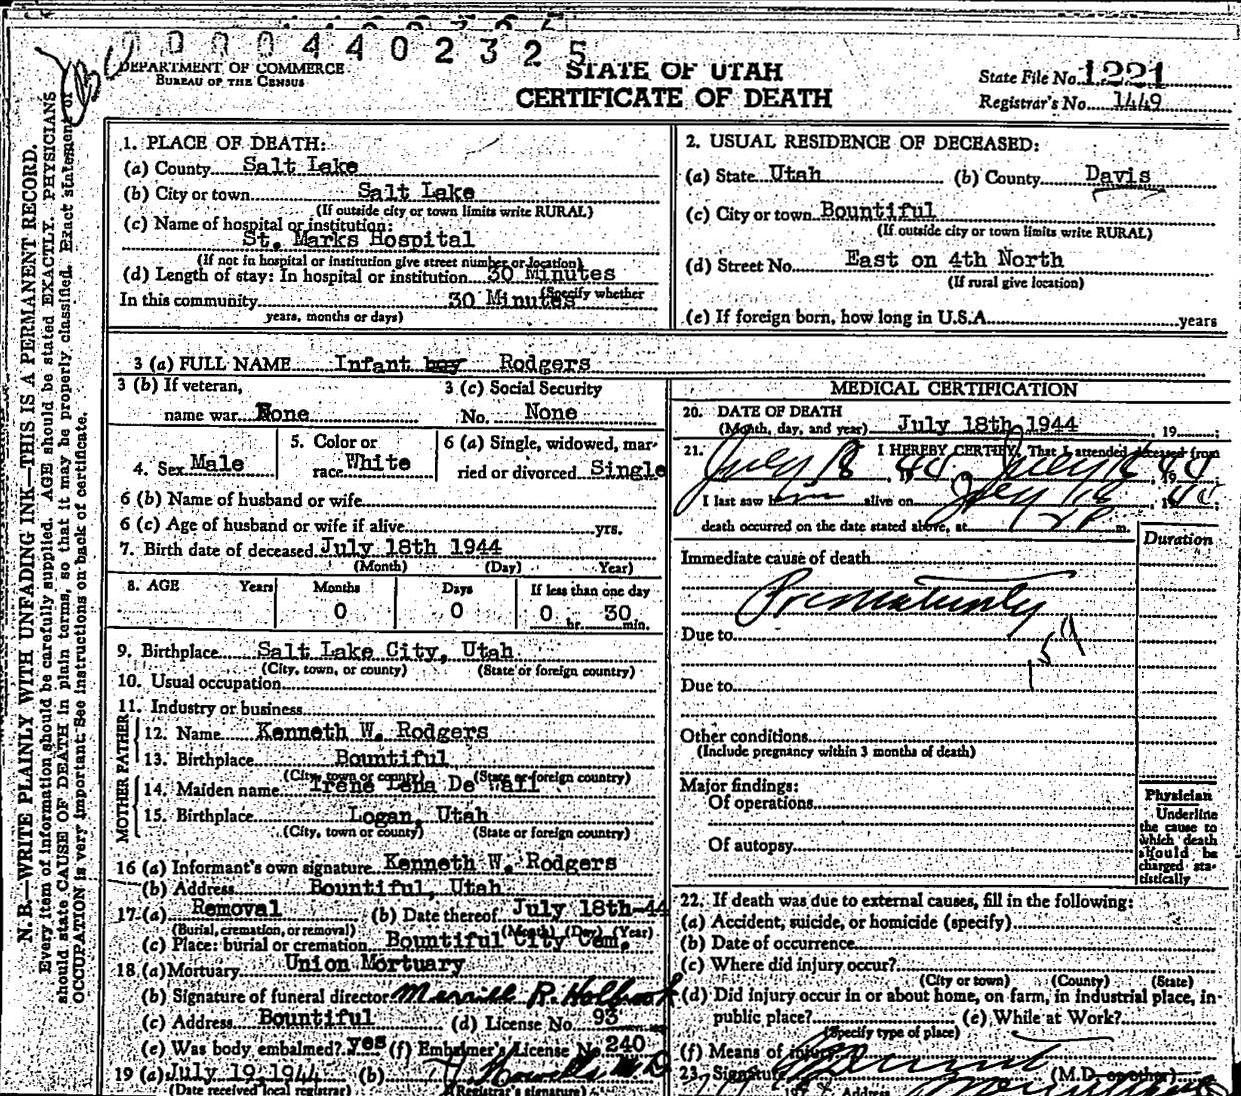 0 0 0 0 4 4 0 2 3 2 5
DEPARTMENT OF COMMERCE
BUREAU OF THE CENSUS
STATE OF UTAH
CERTIFICATE OF DEATH
State File No. 1221
Registrar's No. 1449
N. B.—WRITE PLAINLY WITH UNFADING INK—THIS IS A PERMANENT RECORD.
Every item of information should be carefully supplied. AGE should be stated EXACTLY. PHYSICIANS
should state CAUSE OF DEATH in plain terms, so that it may be properly classified. Exact statement of
OCCUPATION is very important. See instructions on back of certificate.
1. PLACE OF DEATH:
(a) County Salt Lake
(b) City or town Salt Lake
(If outside city or town limits write RURAL)
(c) Name of hospital or institution:
St. Marks Hospital
(If not in hospital or institution give street number or location)
(d) Length of stay: In hospital or institution 30 Minutes
(Specify whether
In this community 30 Minutes
years, months or days)
2. USUAL RESIDENCE OF DECEASED:
(a) State Utah (b) County Davis
(c) City or town Bountiful
(If outside city or town limits write RURAL)
(d) Street No. East on 4th North
(If rural give location)
(e) If foreign born, how long in U.S.A. years
3 (a) FULL NAME Infant boy Rodgers
3 (b) If veteran,
name war None
3 (c) Social Security
No. None
4. Sex Male
5. Color or
race White
6 (a) Single, widowed, mar-
ried or divorced Single
6 (b) Name of husband or wife
6 (c) Age of husband or wife if alive yrs.
7. Birth date of deceased July 18th 1944
(Month) (Day) Year)
8. AGE Years Months Days If less than one day
0 0 0 hr. 30 min.
9. Birthplace Salt Lake City, Utah
(City, town, or county) (State or foreign country)
10. Usual occupation
11. Industry or business
FATHER
12. Name Kenneth W. Rodgers
13. Birthplace Bountiful
(City, town or county) (State or foreign country)
MOTHER
14. Maiden name Irene Lena De Wall
15. Birthplace Logan, Utah
(City, town or county) (State or foreign country)
16 (a) Informant's own signature Kenneth W. Rodgers
(b) Address Bountiful, Utah
17 (a) Removal (b) Date thereof July 18th-44
(Burial, cremation, or removal) (Month) (Day) (Year)
(c) Place: burial or cremation Bountiful City Cem.
18 (a) Mortuary Union Mortuary
(b) Signature of funeral director Merrill R. Holbrook
(c) Address Bountiful (d) License No. 93
(e) Was body embalmed? yes (f) Embalmer's License No. 240
19 (a) July 19, 1944 (b)
(Date received local registrar) (Registrar's signature)
MEDICAL CERTIFICATION
20. DATE OF DEATH
(Month, day, and year) July 18th 1944, 19 ;
21. I HEREBY CERTIFY, That I attended deceased from
July 18, 1944 July 18, 1944
I last saw him alive on July 18, 19
death occurred on the date stated above, at m.
Duration
Immediate cause of death
Prematurity
Due to
159
Due to
Other conditions
(Include pregnancy within 3 months of death)
Major findings:
Of operations
Of autopsy
Physician
Underline
the cause to
which death
should be
charged sta-
tistically
22. If death was due to external causes, fill in the following:
(a) Accident, suicide, or homicide (specify)
(b) Date of occurrence
(c) Where did injury occur?
(City or town) (County) (State)
(d) Did injury occur in or about home, on farm, in industrial place, in
public place? (e) While at Work?
(Specify type of place)
(f) Means of injury
23. Signature (M.D. or other)
Address